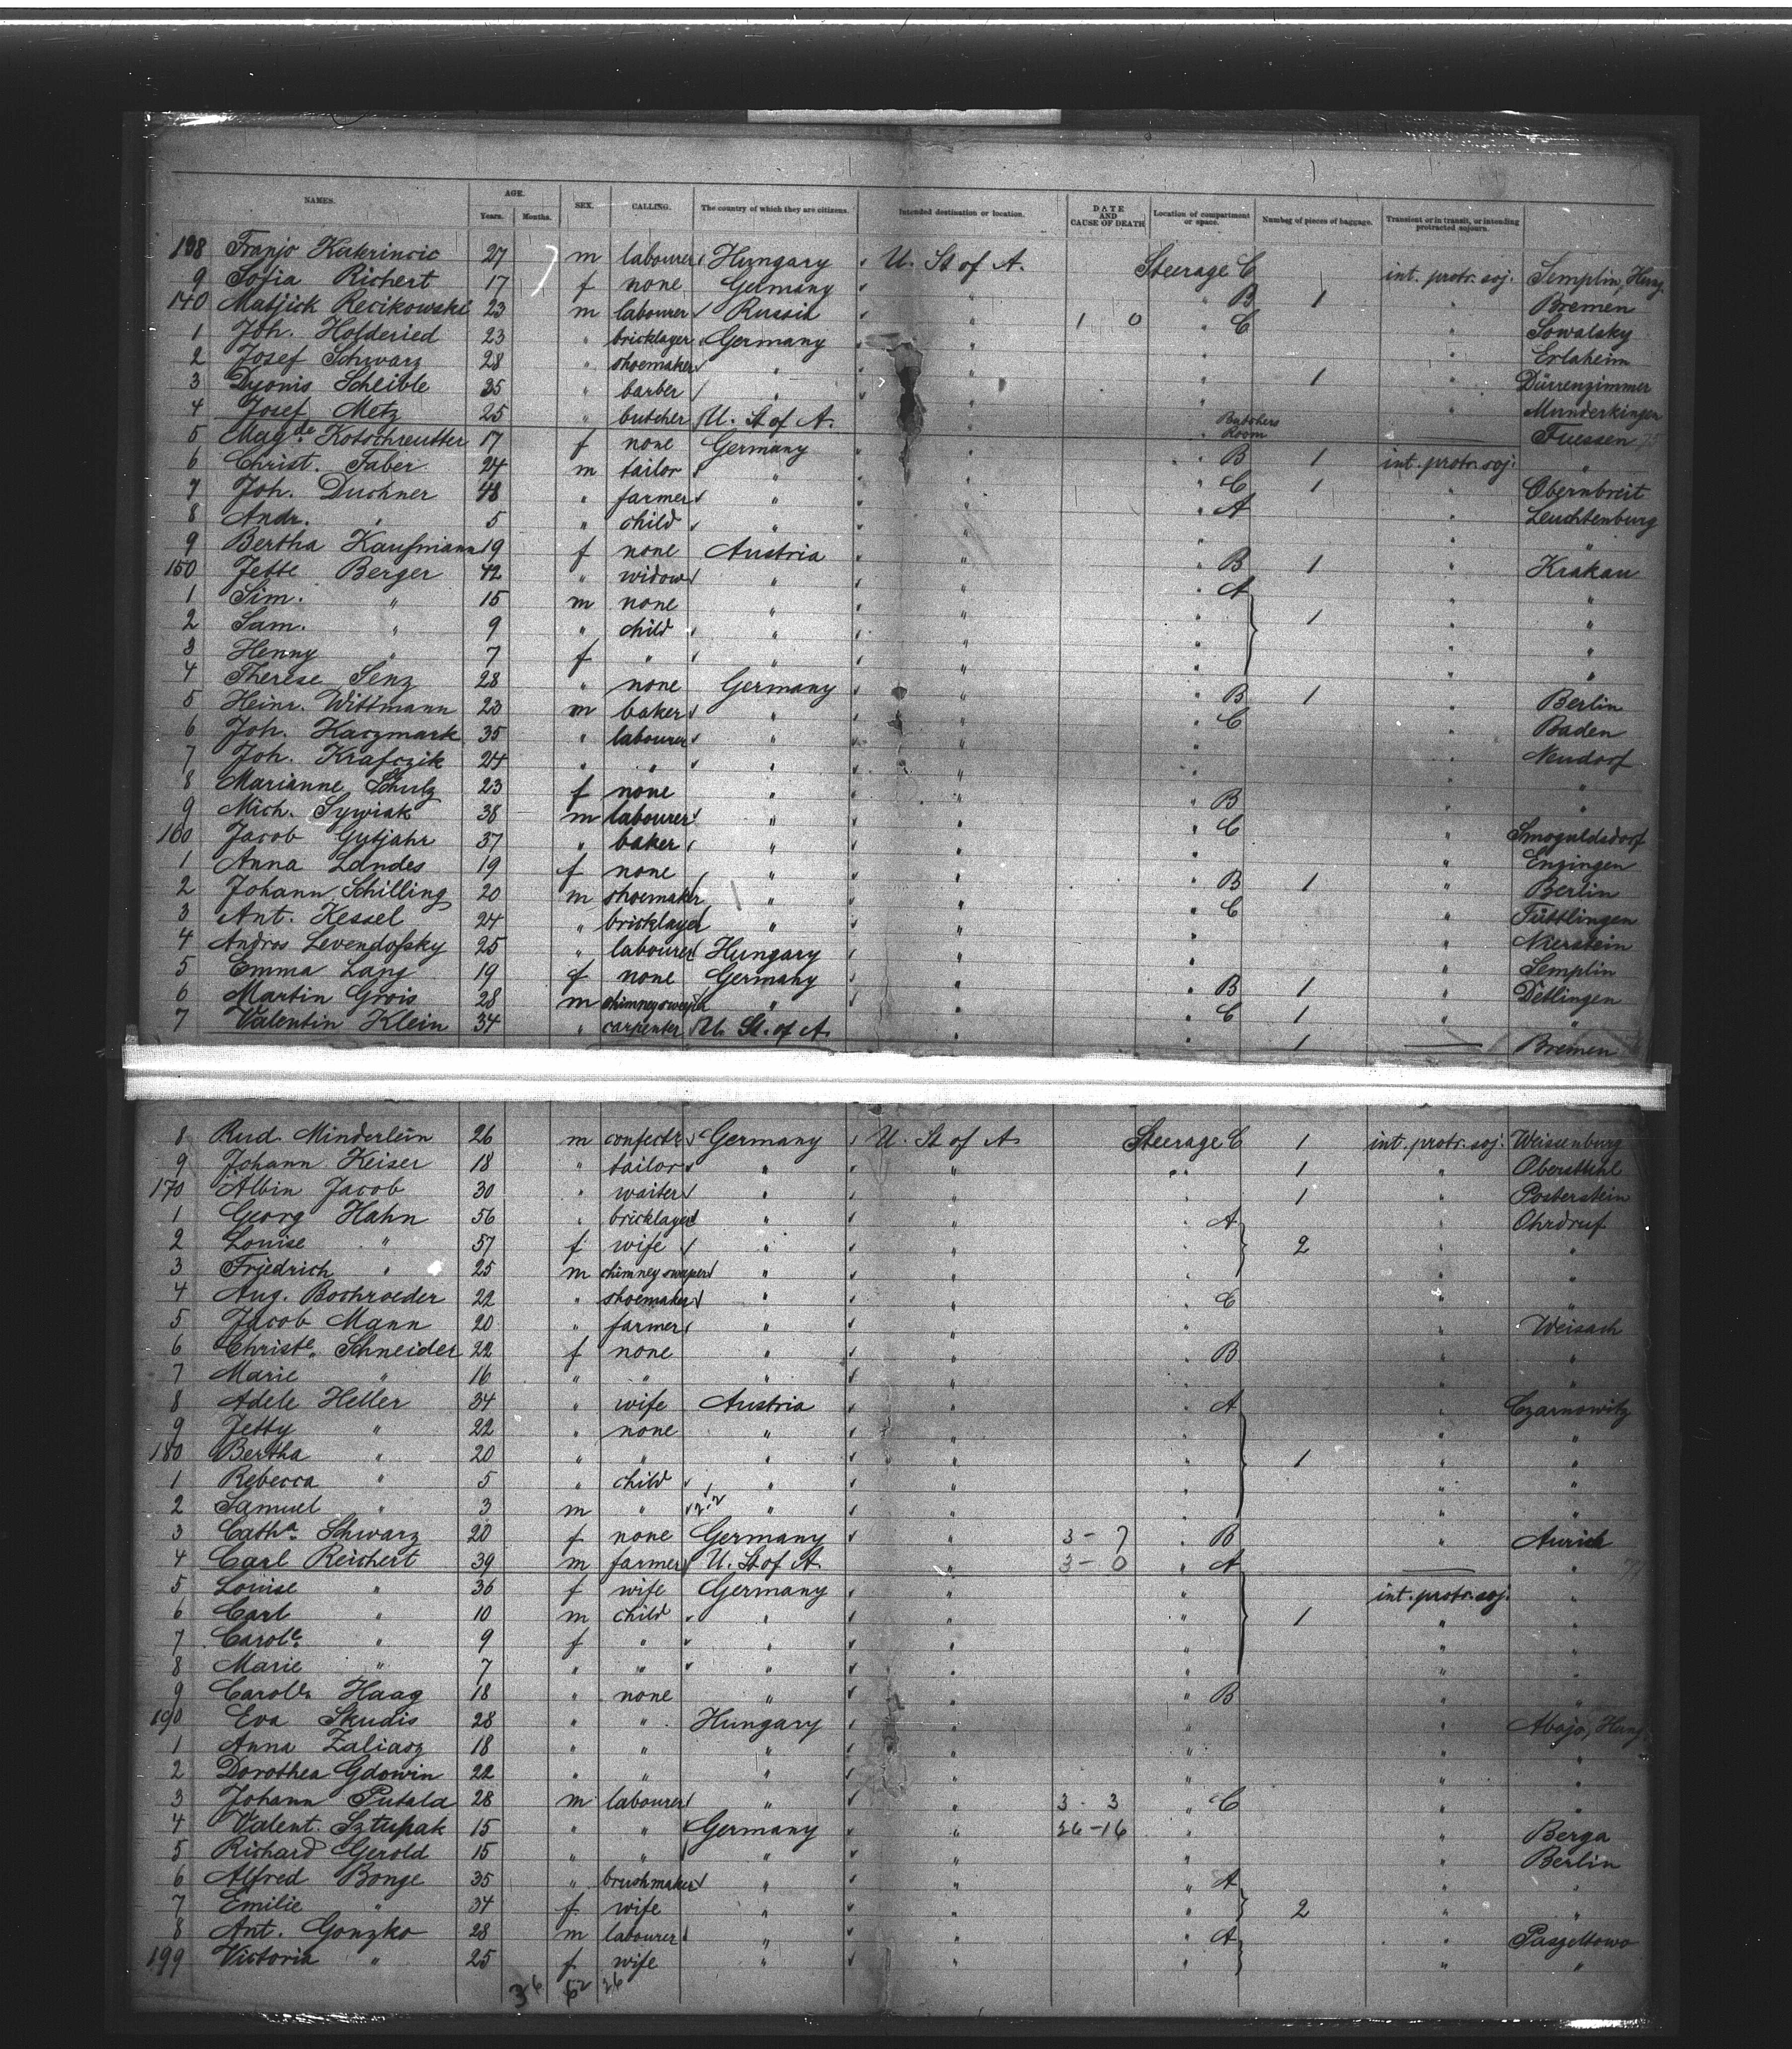 NAMES. AGE. Years. Months. SEX. CALLING. The country of which they are citizens. Intended destination or location. DATE AND CAUSE OF DEATH Location of compartment or space. Number of pieces of baggage. Transient or in transit, or intending protracted sojourn.
138 Franjo Katrincic 27 m labourer Hungary U. St of A. Steerage C int. protr. soj. Semplin, Hung.
9 Sofia Richert 17 f none Germany " " B 1 " Bremen
140 Matjick Recikowski 23 m labourer Russia " 1 0 " C " Sowalsky
1 Joh. Holderied 23 " bricklayer Germany " " " Erlaheim
2 Josef Schwarz 28 " shoemaker " " " 1 " Dürrenzimmer
3 Dyonis Scheible 35 " barber " " " " Munderkingen
4 Josef Metz 25 " butcher U. St of A. " " Butchers Room — Fuessen
5 Magde Kotschreutter 17 f none Germany " " B 1 int. protr. soj. "
6 Christ. Faber 24 m tailor " " " C 1 " Obernbreit
7 Joh. Duchner 48 " farmer " " " A " Leuchtenburg
8 Andr. " 5 " child " " " "
9 Bertha Kaufmann 19 f none Austria " " B 1 " Krakau
150 Jette Berger 42 " widow " " " A " "
1 Sim. " 15 m none " " " 1 " "
2 Sam. " 9 " child " " " " "
3 Henny " 7 f " " " " " "
4 Therese Senz 28 " none Germany " " B 1 " Berlin
5 Heinr. Wittmann 23 m baker " " " C " Baden
6 Joh. Kaczmark 35 " labourer " " " " Neudorf
7 Joh. Krafczik 24 " " " " " " "
8 Marianne Schulz 23 f none " " " B " "
9 Mich. Sywiak 38 m labourer " " " C " Smoguldsdorf
160 Jacob Gutjahr 37 " baker " " " " Enzingen
1 Anna Landes 19 f none " " " B 1 " Berlin
2 Johann Schilling 20 m shoemaker " " " C " Tüttlingen
3 Ant. Kessel 24 " bricklayer " " " " Nierstein
4 Andros Levendofsky 25 " labourer Hungary " " " Semplin
5 Emma Lang 19 f none Germany " " B 1 " Detlingen
6 Martin Grois 28 m chimneysweeper " " " C 1 " "
7 Valentin Klein 34 " carpenter U. St. of A. " " 1 — Bremen
8 Rud. Minderlein 26 m confectr. Germany U. St of A. Steerage C 1 int. protr. soj. Weissenburg
9 Johann Keiser 18 " tailor " " " 1 " Obersthl
170 Albin Jacob 30 " waiter " " " 1 " Posterstein
1 Georg Hahn 56 " bricklayer " " " A " Ohrdruf
2 Louise " 57 f wife " " " 2 " "
3 Friedrich " 25 m chimney sweeper " " " " "
4 Aug. Bochroeder 22 " shoemaker " " " C " "
5 Jacob Mann 20 " farmer " " " " Weisach
6 Christe. Schneider 22 f none " " " B " "
7 Marie " 16 " " " " " " "
8 Adele Heller 34 " wife Austria " " A " Czarnowitz
9 Jetty " 22 " none " " " " "
180 Bertha " 20 " " " " " 1 " "
1 Rebecca " 5 " child " " " " "
2 Samuel " 3 m " " " " " "
3 Catha. Schwarz 20 f none Germany " 3 - 7 " B " Aurich
4 Carl Reichert 39 m farmer U. St of A. " 3 - 0 " A — "
5 Louise " 36 f wife Germany " " int. protr. soj. "
6 Carl " 10 m child " " " 1 " "
7 Carole. " 9 f " " " " " "
8 Marie " 7 " " " " " " "
9 Carole. Haag 18 " none " " " B " "
190 Eva Skudis 28 " " Hungary " " " Abajo, Hung.
1 Anna Zaliasz 18 " " " " " " "
2 Dorothea Gdowin 22 " " " " " " "
3 Johann Putala 28 m labourer " " 3 - 3 " C " "
4 Valent. Sztupak 15 " " Germany " 26 - 16 " " Berga
5 Richard Gerold 15 " " " " " " Berlin
6 Alfred Bonge 35 " brushmaker " " " A " "
7 Emilie " 34 f wife " " " 2 " "
8 Ant. Gonzko 28 m labourer " " " A " Paszeltowo
199 Victoria " 25 f wife " " " " "
36 52 26